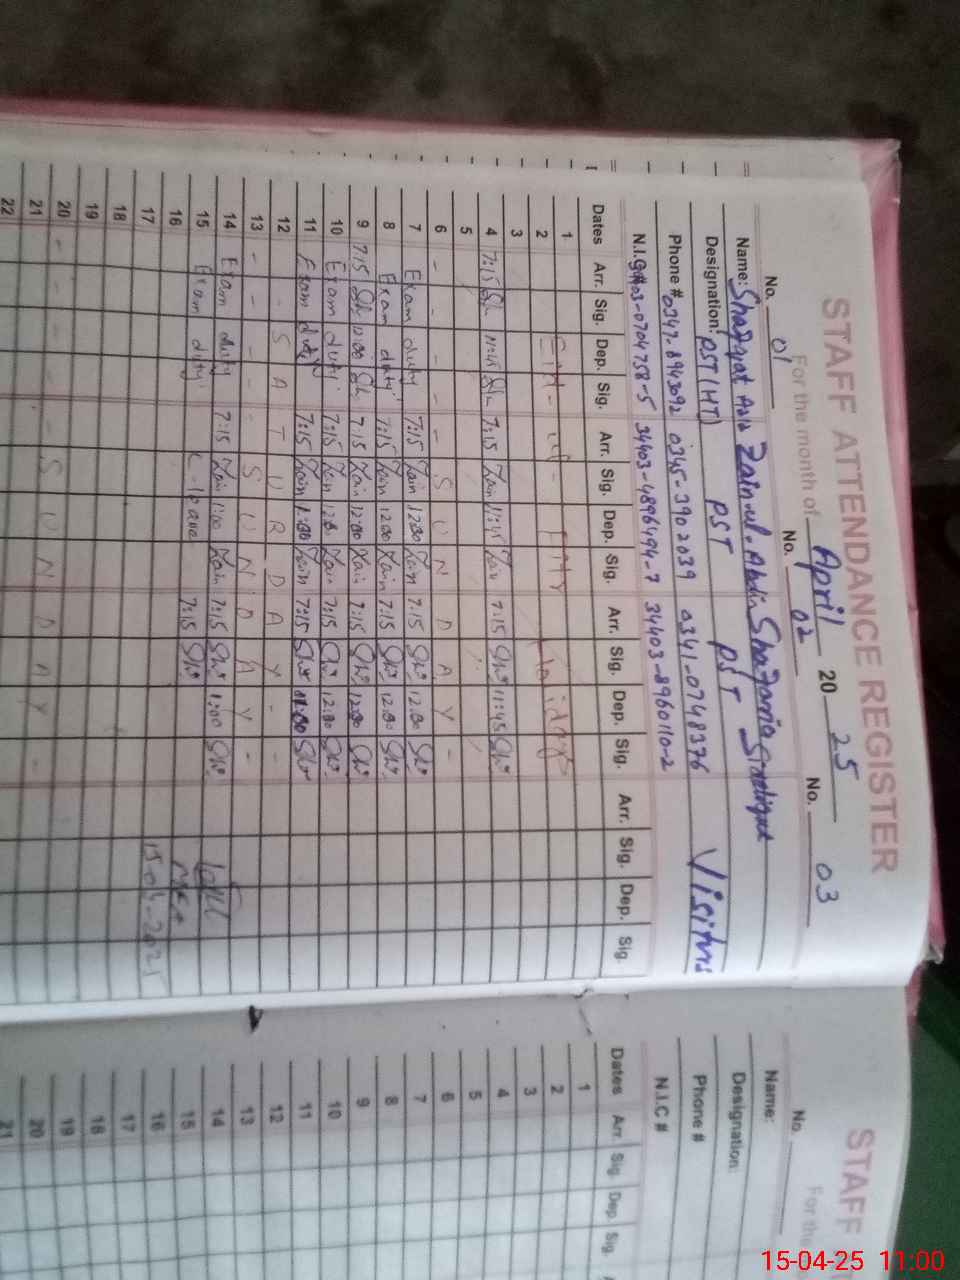 STAFF ATTENDANCE REGISTER
For the month of April 20 25
No. 01 No. 02 No. 03
Name: Shafqat Aziz Zain-ul-Abdin Shazania Siddique
Designation: PST (HT) PST PST Visitors
Phone # 0347-8943092 0345-3902039 0341-0748376
N.I.C # 34403-0704758-5 34403-4896494-7 34403-8960110-2
Dates Arr. Sig. Dep. Sig. Arr. Sig. Dep. Sig. Arr. Sig. Dep. Sig. Arr. Sig. Dep. Sig.
1
2 Eid-ul-Fitr Holidays
3
4 7:15 11:45 7:15 Zain 11:45 Zain 7:15 11:45
5
6 - - - - - S U N D A Y -
7 Exam duty 7:15 Zain 12:00 Zain 7:15 12:00
8 Exam duty 7:15 Zain 12:00 Zain 7:15 12:00
9 7:15 12:00 7:15 Zain 12:00 Zain 7:15 12:00
10 Exam duty 7:15 Zain 12:00 Zain 7:15 12:00
11 Exam duty 7:15 Zain 11:00 Zain 7:15 11:00
12 - - S A T U R D A Y -
13 - - - - - S U N D A Y -
14 Exam duty 7:15 Zain 1:00 Zain 7:15 1:00
15 Exam duty 7:15
16
17 15-04-2025
18
19
20 - - - - - S U N D A Y -
21
22
STAFF
No.
For the
Name:
Designation:
Phone #
N.I.C #
Dates Arr. Sig. Dep. Sig.
1
2
3
4
5
6
7
8
9
10
11
12
13
14
15
16
17
18
19
20
21
15-04-25 11:00